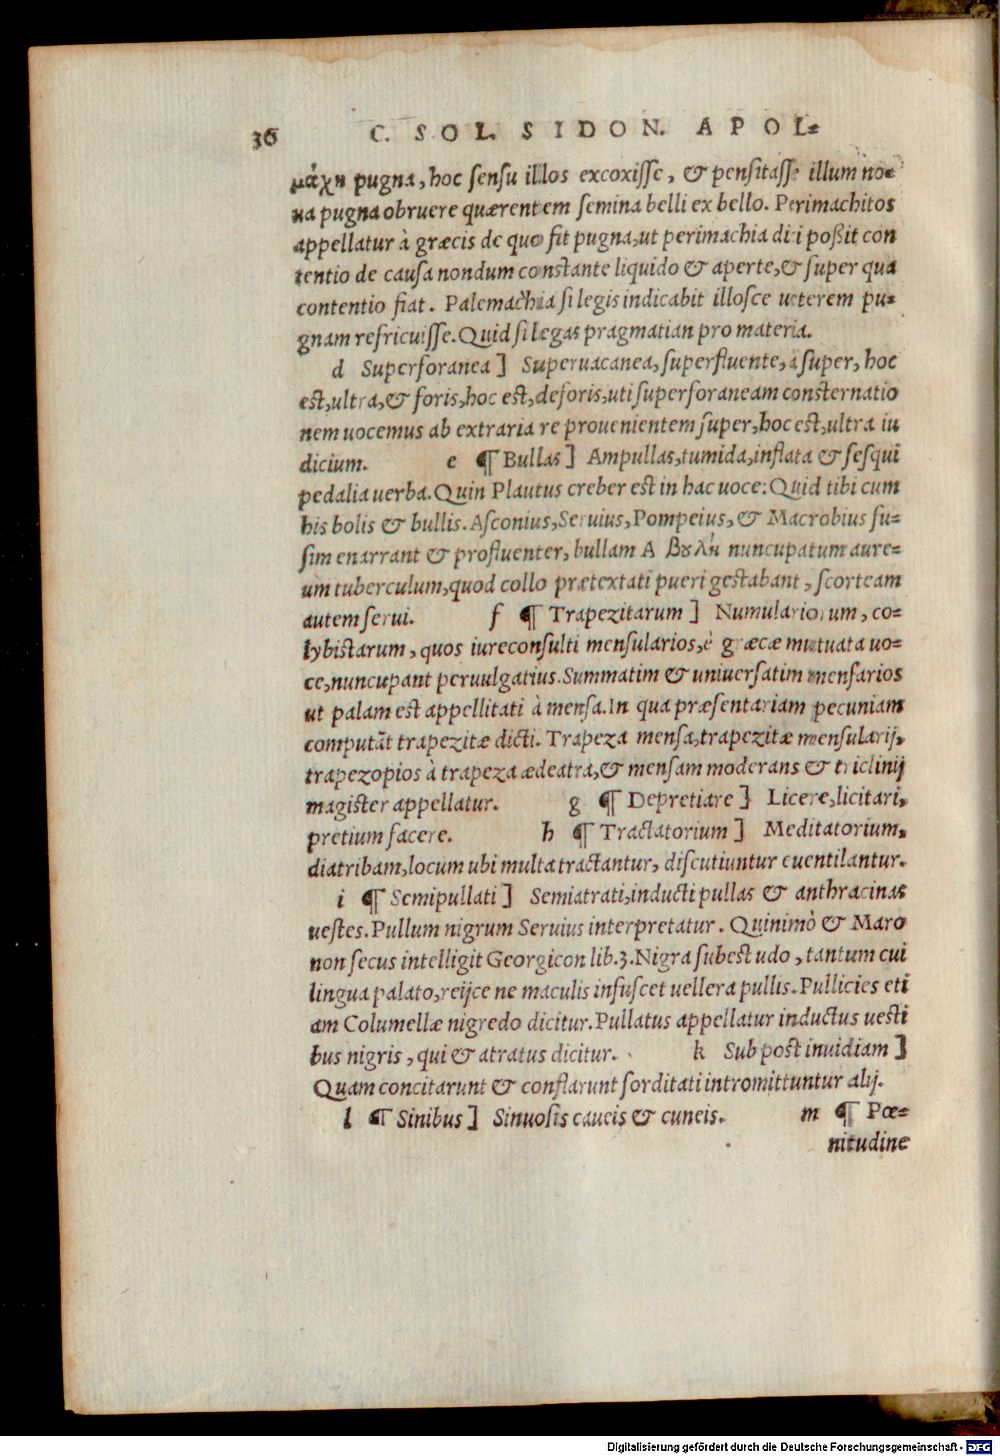 36 C. SOL. SIDON. APOL-
μάχη pugna, hoc sensu illos excoxisse, & pensitasse illum no-
ua pugna obruere quærentem semina belli ex bello. Perimachitos
appellatur à græcis de quo fit pugna, ut perimachia dici poßit con
tentio de causa nondum constante liquido & aperte, & super qua
contentio fiat. Palemachia si legis indicabit illosce ueterem pu-
gnam refricuisse. Quid si legas pragmatian pro materia.
d Superforanea ] Superuacanea, superfluente, a super, hoc
est, ultra, & foris, hoc est, deforis, uti superforaneam consternatio
nem uocemus ab extraria re prouenientem super, hoc est, ultra iu
dicium. e ¶ Bullas ] Ampullas, tumida, inflata & sesqui
pedalia uerba. Quin Plautus creber est in hac uoce: Quid tibi cum
his bolis & bullis. Asconius, Seruius, Pompeius, & Macrobius fu-
sim enarrant & profluenter, bullam A βουλῆ nuncupatum aure-
um tuberculum, quod collo prætextati pueri gestabant, scorteam
autem serui. f ¶ Trapezitarum ] Numulariorum, co-
lybistarum, quos iureconsulti mensularios, è græcæ mutuata uo-
ce, nuncupant peruulgatius. Summatim & uniuersatim mensarios
ut palam est appellitati à mensa. In qua præsentariam pecuniam
computāt trapezitæ dicti. Trapeza mensa, trapezitæ mensularij,
trapezopios à trapeza ædeatra, & mensam moderans & triclinij
magister appellatur. g ¶ Depretiare ] Licere, licitari,
pretium facere. h ¶ Tractatorium ] Meditatorium,
diatribam, locum ubi multa tractantur, discutiuntur euentilantur.
i ¶ Semipullati ] Semiatrati, inducti pullas & anthracinas
uestes. Pullum nigrum Seruius interpretatur. Quinimò & Maro
non secus intelligit Georgicon lib. 3. Nigra subest udo, tantum cui
lingua palato, reijce ne maculis infuscet uellera pullis. Pullicies eti
am Columellæ nigredo dicitur. Pullatus appellatur inductus uesti
bus nigris, qui & atratus dicitur. k Sub post inuidiam ]
Quam concitarunt & conflarunt sorditati intromittuntur alij.
l ¶ Sinibus ] Sinuosis caueis & cuneis. m ¶ Pœ-
nitudine
Digitalisierung gefördert durch die Deutsche Forschungsgemeinschaft - DFG